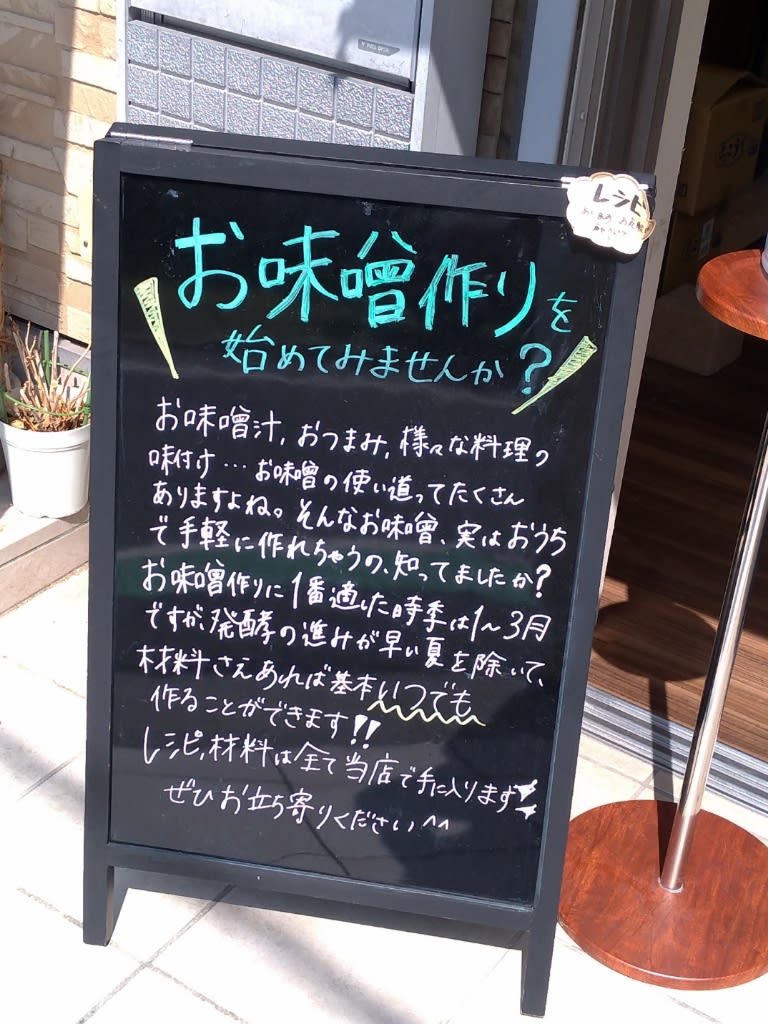 レシピ
お味噌作りを
始めてみませんか?
お味噌汁,おつまみ,様々な料理の
味付け…お味噌の使い道ってたくさん
ありますよね。そんなお味噌、実はおうち
で手軽に作れちゃうの、知ってましたか?
お味噌作りに1番適した時季は1～3月
ですが、発酵の進みが早い夏を除いて、
材料さえあれば基本いつでも
作ることができます!!
レシピ,材料は全て当店で手に入ります!
ぜひお立ち寄りください^^